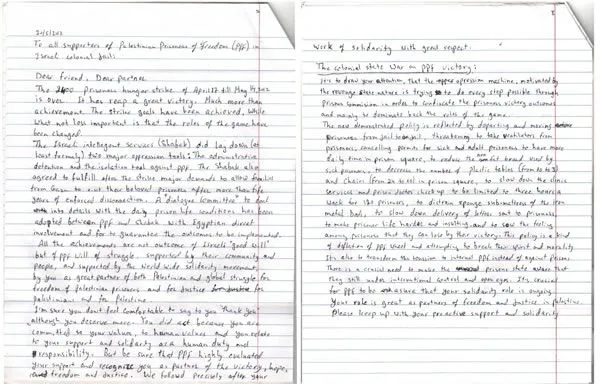 To all supporters of Palestinian Prisoners of Freedom (PPF) in
Israel colonial Jails
Dear friend, Dear partner
The 2400 prisoners hunger strike of April 17 till May 14, 2012
is over. It has reap a great victory. Much more than
achievement. The strike goals have been achieved, while
what not less important is that the roles of the game have
been changed.
The Israeli intelligent services (Shabak) did lay down (at
least formely) two major oppression tools: The administrative
detention and the isolation tool against PPF. The Shabak also
agreed to fulfill the strike major demands to allow families
from Gaza to visit their beloved prisoners after more than five
years of enforced disconnection. A dialogue committee to deal
into details with the daily prison life conditions has been
adopted between PPF and Shabak with Egyptian direct
involvement and for to guarantee the outcomes to be implemented.
All the achievements are not outcome of Israel's "good will"
but of PPF will of struggle. supported by their community and
people, and supported by the world wide solidarity movement,
by you as great partner of the Palestinian and global struggle for
freedom of palestinian prisoners and for Justice
palestinian and for palestine.
I'm sure you don't feel comfortable to say to you "Thank you"
although you deserve more. You did act because you are
committed to your values, to human values and you relate
to your support and solidarity as a human duty and
responsibility. But be sure that PPF highly evaluated
your support and recognize you as partner of the victory, hope,
freedom and Justice. We followed precisely after your
work of solidarity with great respect.
The colonial state War on PPF victory:
It's to draw your attention, that the oppression machine, motivated by
the revenge state nature is trying to do every step possible through
prisons commission in order to confiscate the prisoners victory outcomes
and mainly to dominate back the rules of the game.
The new demonstrated policy is reflected by deporting and moving
prisoners from jail to jail, threatening to take ventilators from
prisoners, cancelling permits for sick and adult prisoners to have more
daily time in prison square, to reduce the bread used by
sick prisoners, to decrease the number of plastic tables (from 10 to 3)
and chairs (from 20 to 10) in prison square, to slow down the clinic
services and prison doctor check up to be limited to three hours a
week for 120 prisoners, to distrain sponge submattress of the iron
metal beds, to slow down delivery of letters sent to prisoners,
to make prisoner life harder and insulting and to sow the feeling
among prisoners that they can lose by their victory. This policy is a kind
of deflation of PPF wheel and attempting to break their spirit and morality
It's also to transform the tension to internal PPF instead of against prisons.
There is a crucial need to make the prisons state aware that
they still under international control and open eyes. It's crucial
for PPF to be assure that your solidarity role is ongoing
Your role is great as partners of freedom and Justice in palestine
Please keep up with your proactive support and solidarity